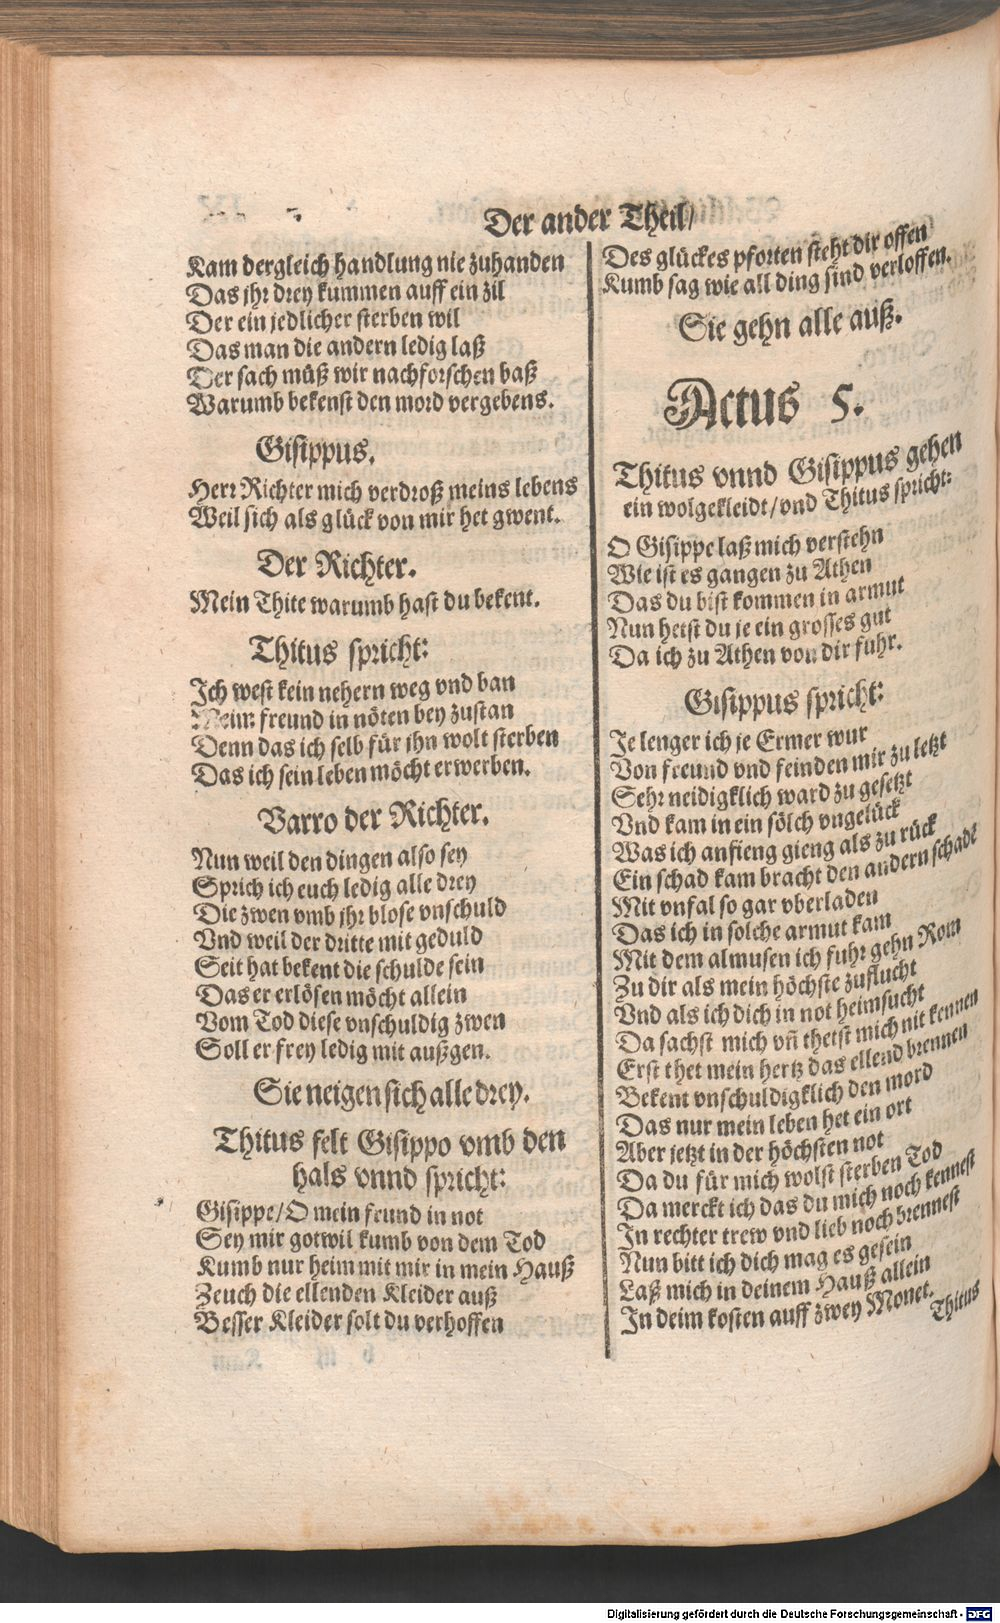 Der ander Theil/
Kam dergleich handlung nie zuhanden
Das jhr drey kummen auff ein zil
Der ein jedlicher sterben wil
Das man die andern ledig laß
Der sach müß wir nachforschen baß
Warumb bekenst den mord vergebens.
Gisippus.
Herr Richter mich verdroß meins lebens
Weil sich als glück von mir het gwent.
Der Richter.
Mein Thite warumb hast du bekent.
Thitus spricht:
Ich west kein nehern weg vnd ban
Meim freund in nöten bey zustan
Denn das ich selb für jhn wolt sterben
Das ich sein leben möcht erwerben.
Varro der Richter.
Nun weil den dingen also sey
Sprich ich euch ledig alle drey
Die zwen vmb jhr blose vnschuld
Vnd weil der dritte mit geduld
Seit hat bekent die schulde sein
Das er erlösen möcht allein
Vom Tod diese vnschuldig zwen
Soll er frey ledig mit außgen.
Sie neigen sich alle drey.
Thitus felt Gisippo vmb den
hals vnnd spricht:
Gisippe/O mein freund in not
Sey mir gotwil kumb von dem Tod
Kumb nur heim mit mir in mein Hauß
Zeuch die ellenden Kleider auß
Besser Kleider solt du verhoffen
Des glückes pforten steht dir offen
Kumb sag wie all ding sind verloffen.
Sie gehn alle auß.
Actus 5.
Thitus vnnd Gisippus gehen
ein wolgekleidt/vnd Thitus spricht:
O Gisippe laß mich verstehn
Wie ist es gangen zu Athen
Das du bist kommen in armut
Nun hetst du je ein grosses gut
Da ich zu Athen von dir fuhr.
Gisippus spricht:
Je lenger ich je Ermer wur
Von freund vnd feinden mir zu letzt
Sehr neidigklich ward zu gesetzt
Vnd kam in ein sölch vngelück
Was ich anfieng gieng als zu rück
Ein schad kam bracht den andern schadē
Mit vnfal so gar vberladen
Das ich in solche armut kam
Mit dem almusen ich fuhr gehn Rom
Zu dir als mein höchste zuflucht
Vnd als ich dich in not heimsucht
Da sachst mich vñ thetst mich nit kennen
Erst thet mein hertz das ellend brennen
Bekent vnschuldigklich den mord
Das nur mein leben het ein ort
Aber jetzt in der höchsten not
Da du für mich wolst sterben Tod
Da merckt ich das du mich noch kennest
In rechter trew vnd lieb noch brennest
Nun bitt ich dich mag es gesein
Laß mich in deinem Hauß allein
In deim kosten auff zwey Monet.
Thitus
Digitalisierung gefördert durch die Deutsche Forschungsgemeinschaft - DFG